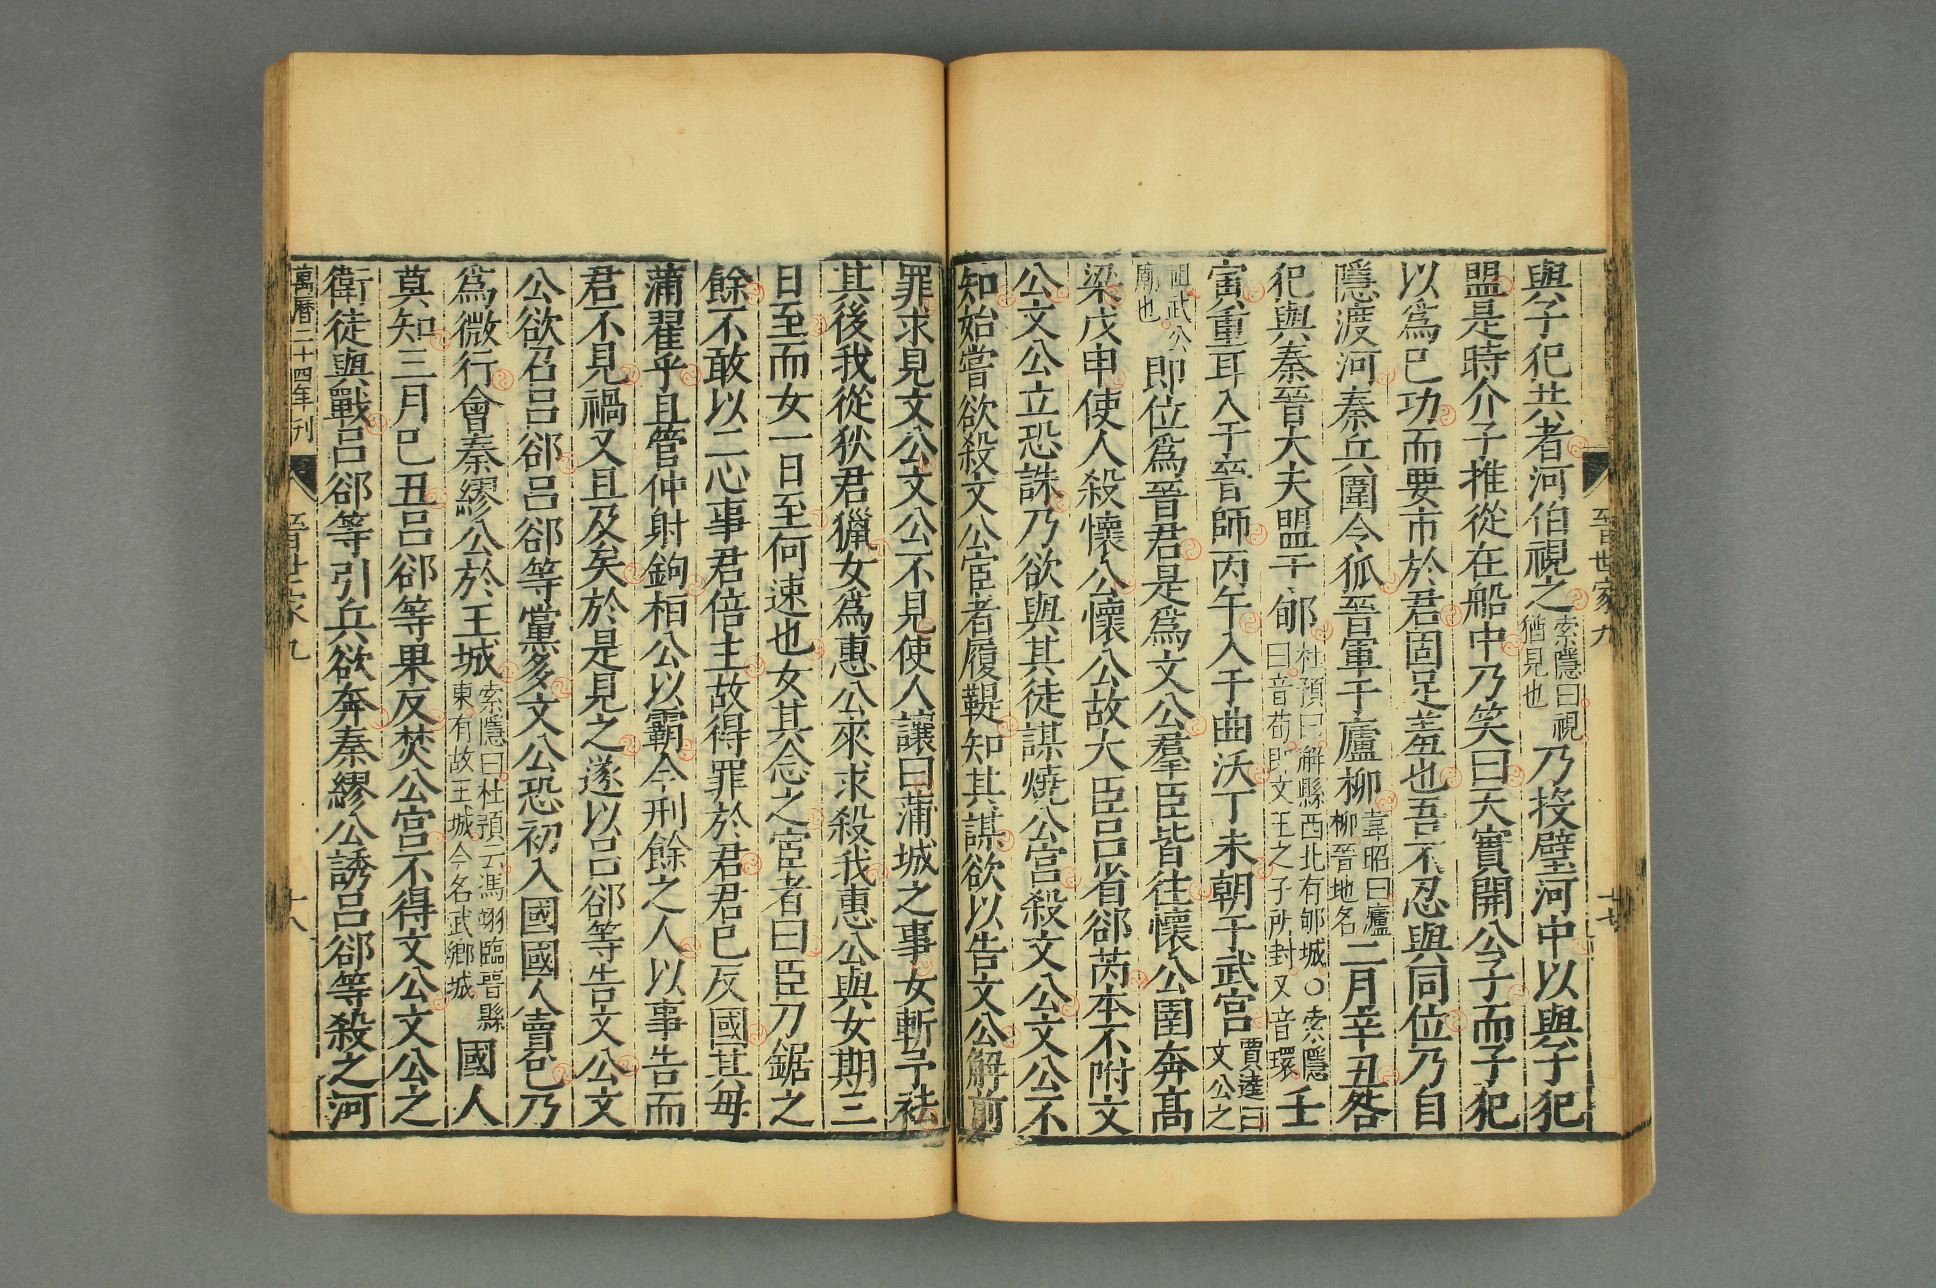 晉世家九
十七
與子犯共者河伯視之索隱曰視猶見也乃投璧河中以與子犯
盟是時介子推從在船中乃笑曰天實開公子而子犯
以爲己功而要市於君固足羞也吾不忍與同位乃自
隱渡河秦兵圍令狐晉軍于廬柳韋昭曰廬柳晉地名二月辛丑咎
犯與秦晉大夫盟于郇杜預曰解縣西北有郇城○索隱曰音荀即文王之子所封又音環壬
寅重耳入于晉師丙午入于曲沃丁未朝于武宮賈逵曰文公之
祖武公廟也即位爲晉君是爲文公羣臣皆往懷公圉奔高
梁戊申使人殺懷公懷公故大臣呂省郤芮本不附文
公文公立恐誅乃欲與其徒謀燒公宮殺文公文公不
知始嘗欲殺文公宦者履鞮知其謀欲以告文公解前
罪求見文公文公不見使人讓曰蒲城之事女斬予袪
其後我從狄君獵女爲惠公來求殺我惠公與女期三
日至而女一日至何速也女其念之宦者曰臣刀鋸之
餘不敢以二心事君倍主故得罪於君君已反國其毋
蒲翟乎且管仲射鉤桓公以霸今刑餘之人以事告而
君不見禍又且及矣於是見之遂以呂郤等告文公文
公欲召呂郤呂郤等黨多文公恐初入國國人賣己乃
爲微行會秦繆公於王城索隱曰杜預云馮翊臨晉縣東有故王城今名武鄉城國人
莫知三月己丑呂郤等果反焚公宮不得文公文公之
衛徒與戰呂郤等引兵欲奔秦繆公誘呂郤等殺之河
萬曆二十四年刊
晉世家九
十八